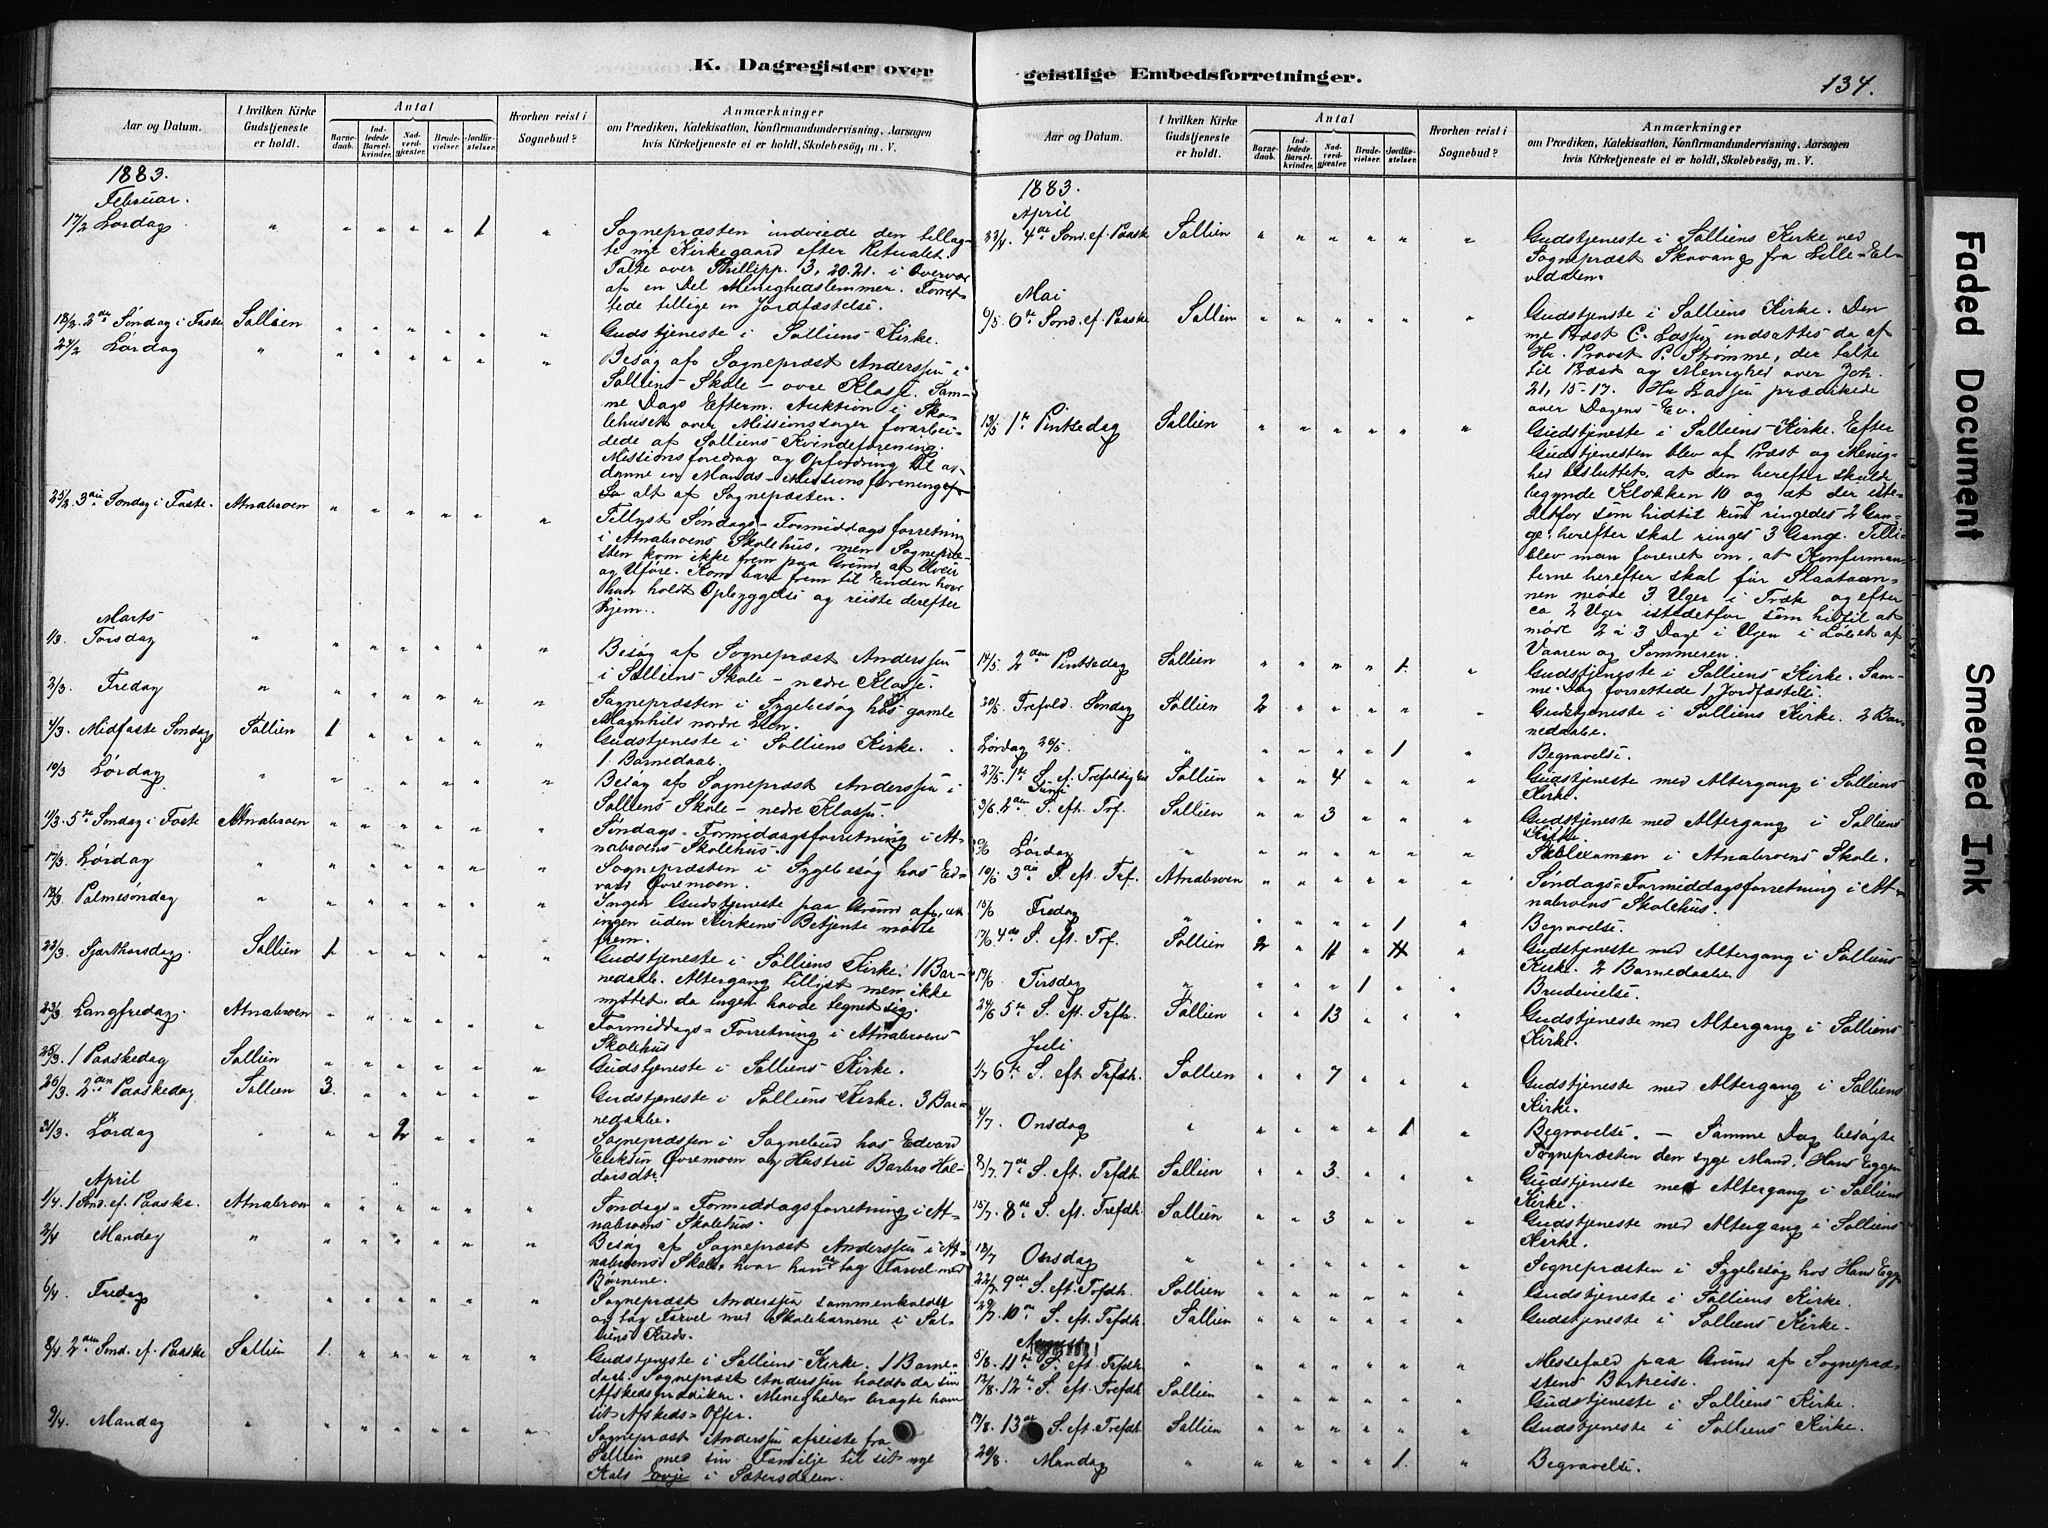 K. Dagregister over
Aar og Datum.
I hvilken Kirke Gudstjeneste er holdt.
Antal
Barnedaab.
Indledede Barselkvinder.
Nadverdgjæster.
Brudevielser.
Jordfæstelser.
Hvorhen reist i Sognebud?
Anmærkninger
om Prædiken, Katekisation, Konfirmandundervisning, Aarsagen
hvis Kirketjeneste ei er holdt, Skolebesög, m. V.
1883.
Februar.
17/2 Lördag " " " " " 1 "
Sognepræsten indviede den tillag-
te nye Kirkegaard efter Ritualet.
Talte over Phillipp. 3, 20.21. i Overvær
af en Del Menighedslemmer. Forret-
tede tillige en Jordfæstelse.
18/2. 2den Söndag i Faste Sollien " " " " " "
Gudstjeneste i Solliens Kirke.
24/2 Lördag " " " " " " "
Besög af Sognepræst Anderssen i
Solliens Skole – övre Klasse. Sam-
me Dags Efterm. Auktion i Sko-
lehuset over Missionssager forarbei-
dede af Solliens Kvindeforening.
Missionsforedrag og Opfordring til at
danne en Mands-Missionsforening
Sa alt af Sognepræsten.
25/2. 3die Söndag i Faste. Atnabroen " " " " " "
Tillyst Söndags-Formiddagsforretning
i Atnabroens Skolehus, men Sognepræ-
sten kom ikke frem paa Grund af Uveir
og Uföre. Kom bare frem til Enden hvor
han holdt Opbyggelse og reiste derefter
hjem.
Marts
1/3. Torsdag " " " " " " "
Besög af Sognepræst Anderssen
i Solliens Skole – nedre Klasse.
2/3. Fredag " " " " " " "
Sognepræsten i Sygebesög hos gamle
Magnhild nordre
4/3. Midfaste Söndag Sollien 1 " " " " "
Gudstjeneste i Solliens Kirke.
1 Barnedaab.
10/3 Lördag " " " " " " "
Besög af Sognepræst Anderssen i
Solliens Skole – nedre Klasse.
11/3. 5te Söndag i Faste Atnabroen " " " " " "
Söndags-Formiddagsforretning i At-
nabroens Skolehus.
17/3. Lördag " " " " " " "
Sognepræsten i Sygebesög hos Ed-
vard Övremoen.
18/3. Palmesöndag " " " " " " "
Ingen Gudstjeneste paa Grund af, at
ingen uden Kirkens Betjente mödte
frem.
22/3. Skjærthorsdag Sollien 1 " " " " "
Gudstjeneste i Solliens Kirke. 1 Bar-
nedaab. Altergang tillyst men ikke
nyttet, da ingen havde tegnet sig.
23/3 Langfredag. Atnabroen " " " " " "
Formiddags-Forretning i Atnabroens
Skolehus
25/3. 1 Paaskedag Sollien " " " " " "
Gudstjeneste i Solliens Kirke.
26/3. 2den Paaskedag Sollien 3. " " " " "
Gudstjeneste i Solliens Kirke. 3 Bar-
nedaabe.
31/3. Lördag " " " 2 " " "
Sognepræsten i Sognebud hos Edvard
Eriksen Övremoen og Hustru Barbro Hal-
dorsdtr.
April
1/4. 1 Sönd. ef. Paaske. Atnabroen " " " " " "
Söndags-Formiddagsforretning i At-
nabroens Skolehus.
2/4 Mandag " " " " " " "
Besög af Sognepræst Anderssen i At-
nabroens Skole, hvor han tog Farvel med
Börnene.
6/4. Fredag " " " " " " "
Sognepræst Anderssen sammenkaldte
og tog Farvel med Skolebörnene i Sol-
liens Kreds.
8/4. 2den Sönd. ef. Paaske Sollien 1. " " " " "
Gudstjeneste i Solliens Kirke. 1 Barne-
daab. Sognepræst Anderssen holdt da sin
Afskedsprædiken. Menigheden bragte ham
sit Afskeds-Offer.
9/4. Mandag " " " " " " "
Sognepræst Anderssen afreiste fra
Sollien med sin Familje til sit nye
Kald i Sætersdalen.
geistlige Embedsforretninger.
134.
Aar og Datum.
I hvilken Kirke Gudstjeneste er holdt.
Antal
Barnedaab.
Indledede Barselkvinder.
Nadverdgjæster.
Brudevielser.
Jordfæstelser.
Hvorhen reist i Sognebud?
Anmærkninger
om Prædiken, Katekisation, Konfirmandundervisning, Aarsagen
hvis Kirketjeneste ei er holdt, Skolebesög, m. V.
1883.
April
22/4. 4de Sönd. ef. Paaske Sollien " " " " " "
Gudstjeneste i Solliens Kirke ved
Sognepræst Skavang fra Lille-El-
vedalen.
Mai
6/5. 6te Sönd. ef. Paaske Sollien " " " " " "
Gudstjenste i Solliens Kirke. Den
nye Præst C. Lassen indsattes da af
Hr. Provst P. Strømme, der talte
til Præst og Menighed over Joh.
21, 15-17. Hr Lassen prædikede
over Dagens Ev.
13/5 1te Pintsedag Sollien " " " " " "
Gudstjeneste i Solliens Kirke. Efter
Gudstjenesten blev af Præst og Menig-
hed besluttet, at den herefter skulde
begynde Klokken 10 og at der iste-
detfor som hidtil kun ringedes 2 Gan-
ge, herefter skal ringes 3 Gange. Tilli-
blev man forenet om, at Konfirman-
terne herefter skal för Slaataan-
nen möde 3 Uger i Træk og efter
ca 2 Uger istedetfor som hidtil at
möde 2 à 3 Dage i Ugen i Löbet af
Vaaren og Sommeren.
14/5. 2den Pintsedag Sollien " " " " 1. "
Gudstjeneste i Solliens Kirke. Sam-
me Dag forrettede 1 Jordfæstelse.
20/5. Trefold. Söndag Sollien 2 " " " " "
Gudstjeneste i Solliens Kirke. 2 Bar-
nedaabe.
Lördag 26/5. " " " " " 1 "
Begravelse.
27/5. 1te S. ef. Trefoldigheds Sollien " " 4 " " "
Gudstjeneste med Altergang i Solliens
Kirke.
Juni
3/6. 2den S. eft. Tref. Sollien " " 3 " " "
Gudstjeneste med Altergang i Solliens
Kirke
9/6 Lördag " " " " " " "
Skolexamen i Atnabroens Skole.
10/6 3die S. eft. Tref. Atnabroen " " " " " "
Söndags-Formiddagsforretning i At-
nabroens Skolehus.
15/6 Fredag " " " " " 1 "
Begravelse.
17/6. 4de S. eft. Tref. Sollien 2 " 11 "
Gudstjeneste med Altergang i Solliens
Kirke. 2 Barnedaabe.
19/6 Tirsdag " " " " 1 " "
Brudevielse.
24/6 5te S. eft. Trfh. Sollien " " 13 " " "
Gudstjeneste med Altergang i Solliens
Kirke.
Juli
1/7 6te S. eft. Trfdh. Sollien " " 7 " " "
Gudstjeneste med Altergang i Solliens
Kirke.
4/7. Onsdag " " " " " 1 "
Begravelse. – Samme Dag besögte
Sognepræsten den syge Mand, Hans Eggen
8/7. 7de S. eft. Trfdh. Sollien " " 3. " " "
Gudstjeneste med Altergang i Solliens
Kirke.
15/7. 8de S. eft. Trefdh. Sollien " " 3 " " "
Gudstjeneste med Altergang i Solliens
Kirke.
18/7 Onsdag " " " " " " "
Sognepræsten i Sygebesög hos Hans Egg
22/7 9de S. eft. Trefdh. Sollien " " " " " "
Gudstjeneste i Solliens Kirke.
29/7. 10de S. eft. Trfdh. Sollien " " " " " "
Gudstjeneste i Solliens Kirke.
August
5/8. 11te S. eft. Trfdh. " " " " " " "
Messefald paa Grund af Sognepræ-
stens Bortreise.
12/8. 12te S. eft. Trefdh. Sollien " " " " " "
Gudstjeneste i Solliens Kirke.
19/8. 13de S. eft. Trefdh. Sollien " " " " " "
Gudstjeneste i Solliens Kirke.
20/8. Mandag " " " " " 1. "
Begravelse.
Faded Document
Smeared Ink